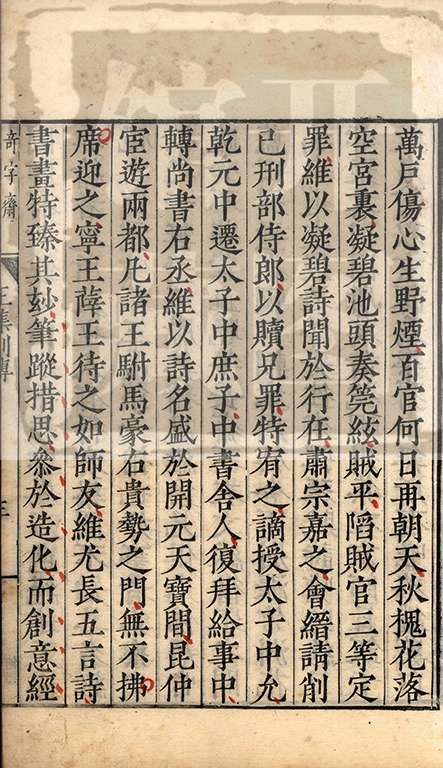 萬戶傷心生野煙百官何日再朝天秋槐花落
空宮裏凝碧池頭奏筦絃賊平陷賊官三等定
罪維以凝碧詩聞於行在肅宗嘉之會縉請削
己刑部侍郎以贖兄罪特宥之謫授太子中允
乾元中遷太子中庶子中書舍人復拜給事中
轉尚書右丞維以詩名盛於開元天寶間昆仲
宦遊兩都凡諸王駙馬豪右貴勢之門無不拂
席迎之寧王薛王待之如師友維尤長五言詩
書畫特臻其妙筆蹤措思參於造化而創意經
奇字齋
王集列傳
三